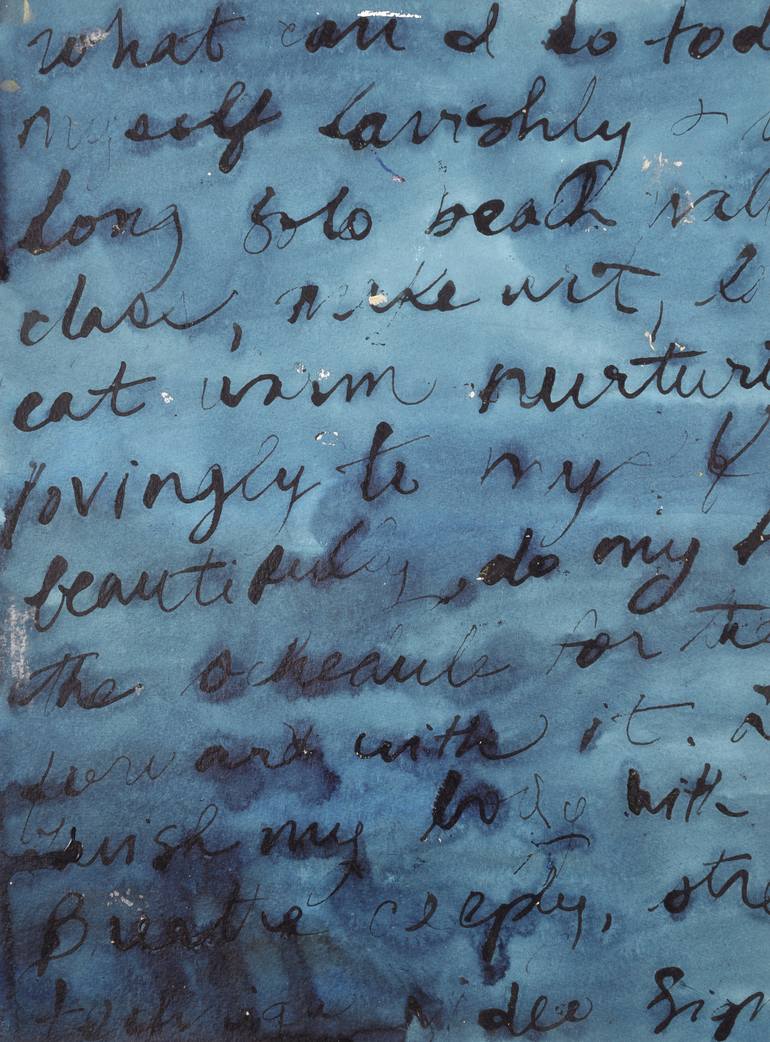 what can I do tod
myself lavishly &
long solo beach wal
class, make art, 
cat warm nurturi
lovingly to my
beautifully, do my
the schedule for the
forward with it.
lavish my body with
Breathe deeply, stre
technique video Sign